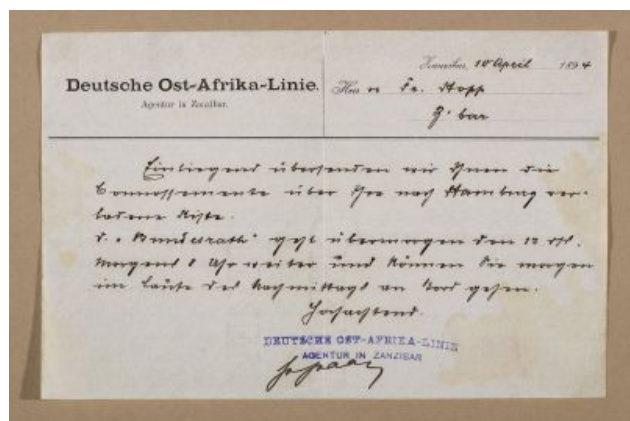 Zanzibar, 10 April 1894
Deutsche Ost-Afrika-Linie.
Herrn Fr. Stopp
Agentur in Zanzibar.
Z'bar
Einliegend übersenden wir Ihnen die
Connossemente über Ihre nach Hamburg ver-
ladene Kiste.
D. „Bundesrath" geht übermorgen den 12 ds.
Morgens 8 Uhr weiter und können Sie morgen
im Laufe des Nachmittags an Bord gehen.
Hochachtend
DEUTSCHE OST-AFRIKA-LINIE
AGENTUR IN ZANZIBAR